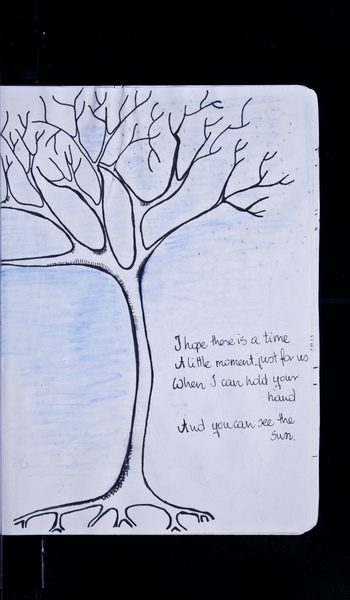 I hope there is a time
A little moment, just for us
When I can hold your
hand
And you can see the
sun.